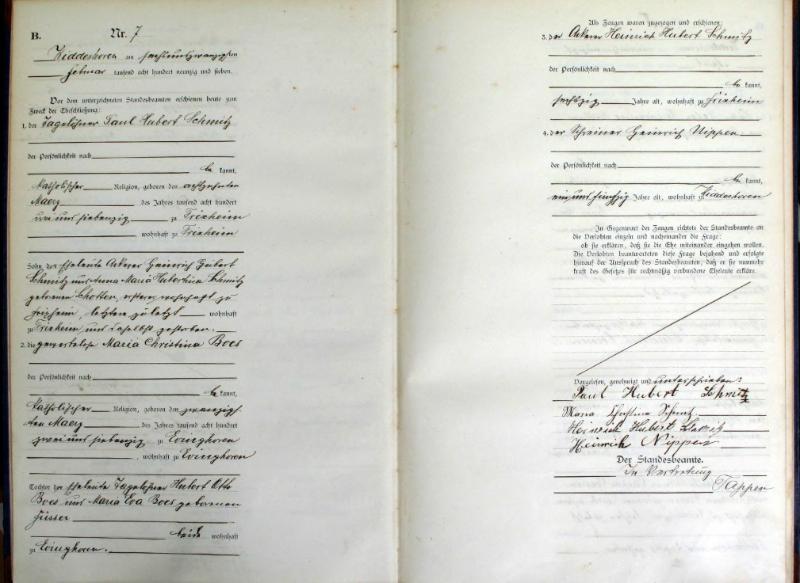 B. Nr. 7
Hiddeshoven am sechsundzwanzigsten
Februar tausend acht hundert neunzig und sieben.
Vor dem unterzeichneten Standesbeamten erschienen heute zum
Zweck der Eheschließung:
1. der Tagelöhner Paul Hubert Schmitz
der Persönlichkeit nach
be kannt,
katholischer Religion, geboren den achtzehnten
Maerz des Jahres tausend acht hundert
und siebenzig zu Frixheim
, wohnhaft zu Frixheim
Sohn der Eheleute Ackerer Heinrich Hubert
Schmitz und Anna Maria Hubertina Schmitz
geborenen Schotten, ersterer wohnhaft zu
Frixheim, letztere zuletzt wohnhaft
zu Frixheim und daselbst gestorben.
2. die gewerbelose Maria Christina Boes
der Persönlichkeit nach
be kannt,
katholischer Religion, geboren den zwanzigs
ten Maerz des Jahres tausend acht hundert
zwei und siebenzig zu Evinghoven
, wohnhaft zu Evinghoven
Tochter der Eheleute Tagelöhner Hubert Otto
Boes und Maria Eva Boes geborenen
beide wohnhaft
zu Evinghoven.
Als Zeugen waren zugezogen und erschienen:
3. der Ackerer Heinrich Hubert Schmitz
der Persönlichkeit nach
be kannt,
sechszig Jahre alt, wohnhaft zu Frixheim
4. der Schreiner Heinrich Nippen
der Persönlichkeit nach
be kannt,
ein und fünfzig Jahre alt, wohnhaft zu Hiddeshoven
In Gegenwart der Zeugen richtete der Standesbeamte an
die Verlobten einzeln und nacheinander die Frage:
ob sie erklären, daß sie die Ehe miteinander eingehen wollen.
Die Verlobten beantworteten diese Frage bejahend und erfolgte
hierauf der Ausspruch des Standesbeamten, daß er sie nunmehr
kraft des Gesetzes für rechtmäßig verbundene Eheleute erkläre.
Vorgelesen, genehmigt und unterschrieben:
Paul Hubert Schmitz
Maria Christina Schmitz
Heinrich Hubert Schmitz
Heinrich Nippen
Der Standesbeamte.
In Vertretung
Tappen